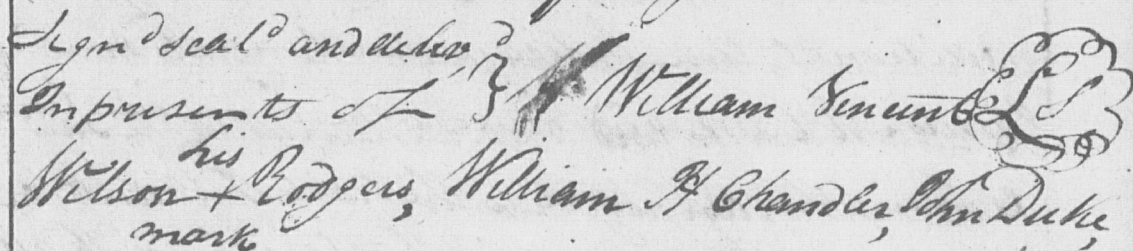 Signd seald and delivd }
In presents of } William Vincent LS
his
Wilson + Rodgers, William H Chandler, John Duke,
mark